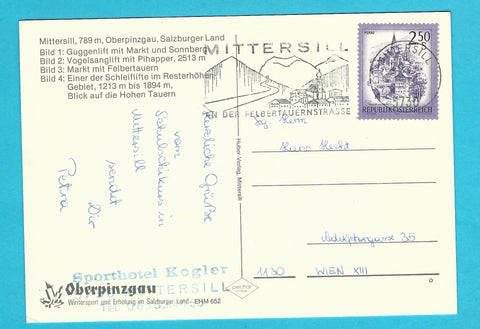 Mittersill, 789 m, Oberpinzgau, Salzburger Land
Bild 1: Guggenlift mit Markt und Sonnberg
Bild 2: Vogelsanglift mit Pihapper, 2513 m
Bild 3: Markt mit Felbertauern
Bild 4: Einer der Schleiflifte im Resterhöhe-
Gebiet, 1213 m bis 1894 m,
Blick auf die Hohen Tauern
MITTERSILL
AN DER FELBERTAUERNSTRASSE
MITTERSILL
5730
2.50
S
MURAU
REPUBLIK ÖSTERREICH
Herzliche Grüße
vom
Schulschikurs in
Mittersill
sendet
Dir
Petra
Huber-Verlag, Mittersill
Sg. Herrn
Hans
35
1130 WIEN XIII
Sporthotel Kogler
MITTERSILL
Tel.
Oberpinzgau
Wintersport und Erholung im Salzburger Land - EHM 652